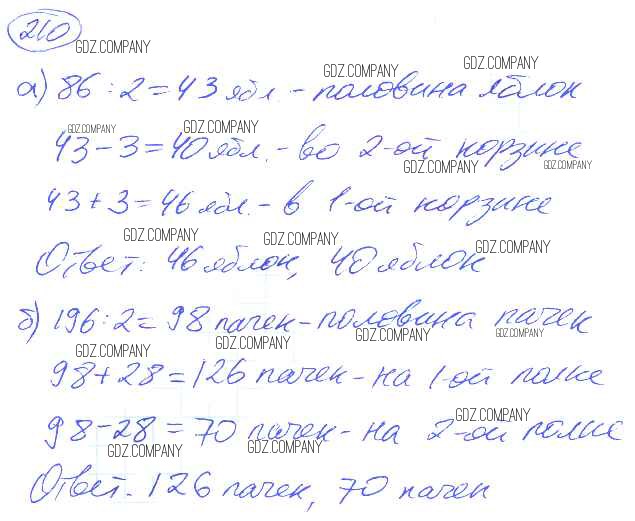 210
GDZ.COMPANY
GDZ.COMPANY GDZ.COMPANY
а) 86 : 2 = 43 ябл. - половина яблок
GDZ.COMPANY GDZ.COMPANY
43 - 3 = 40 ябл. - во 2-ой корзине
GDZ.COMPANY GDZ.COMPANY
43 + 3 = 46 ябл. - в 1-ой корзине
GDZ.COMPANY GDZ.COMPANY GDZ.COMPANY
Ответ: 46 яблок, 40 яблок
б) 196 : 2 = 98 пачек - половина пачек
GDZ.COMPANY GDZ.COMPANY GDZ.COMPANY GDZ.COMPANY
98 + 28 = 126 пачек - на 1-ой полке
GDZ.COMPANY
98 - 28 = 70 пачек - на 2-ой полке
GDZ.COMPANY GDZ.COMPANY
Ответ. 126 пачек, 70 пачек